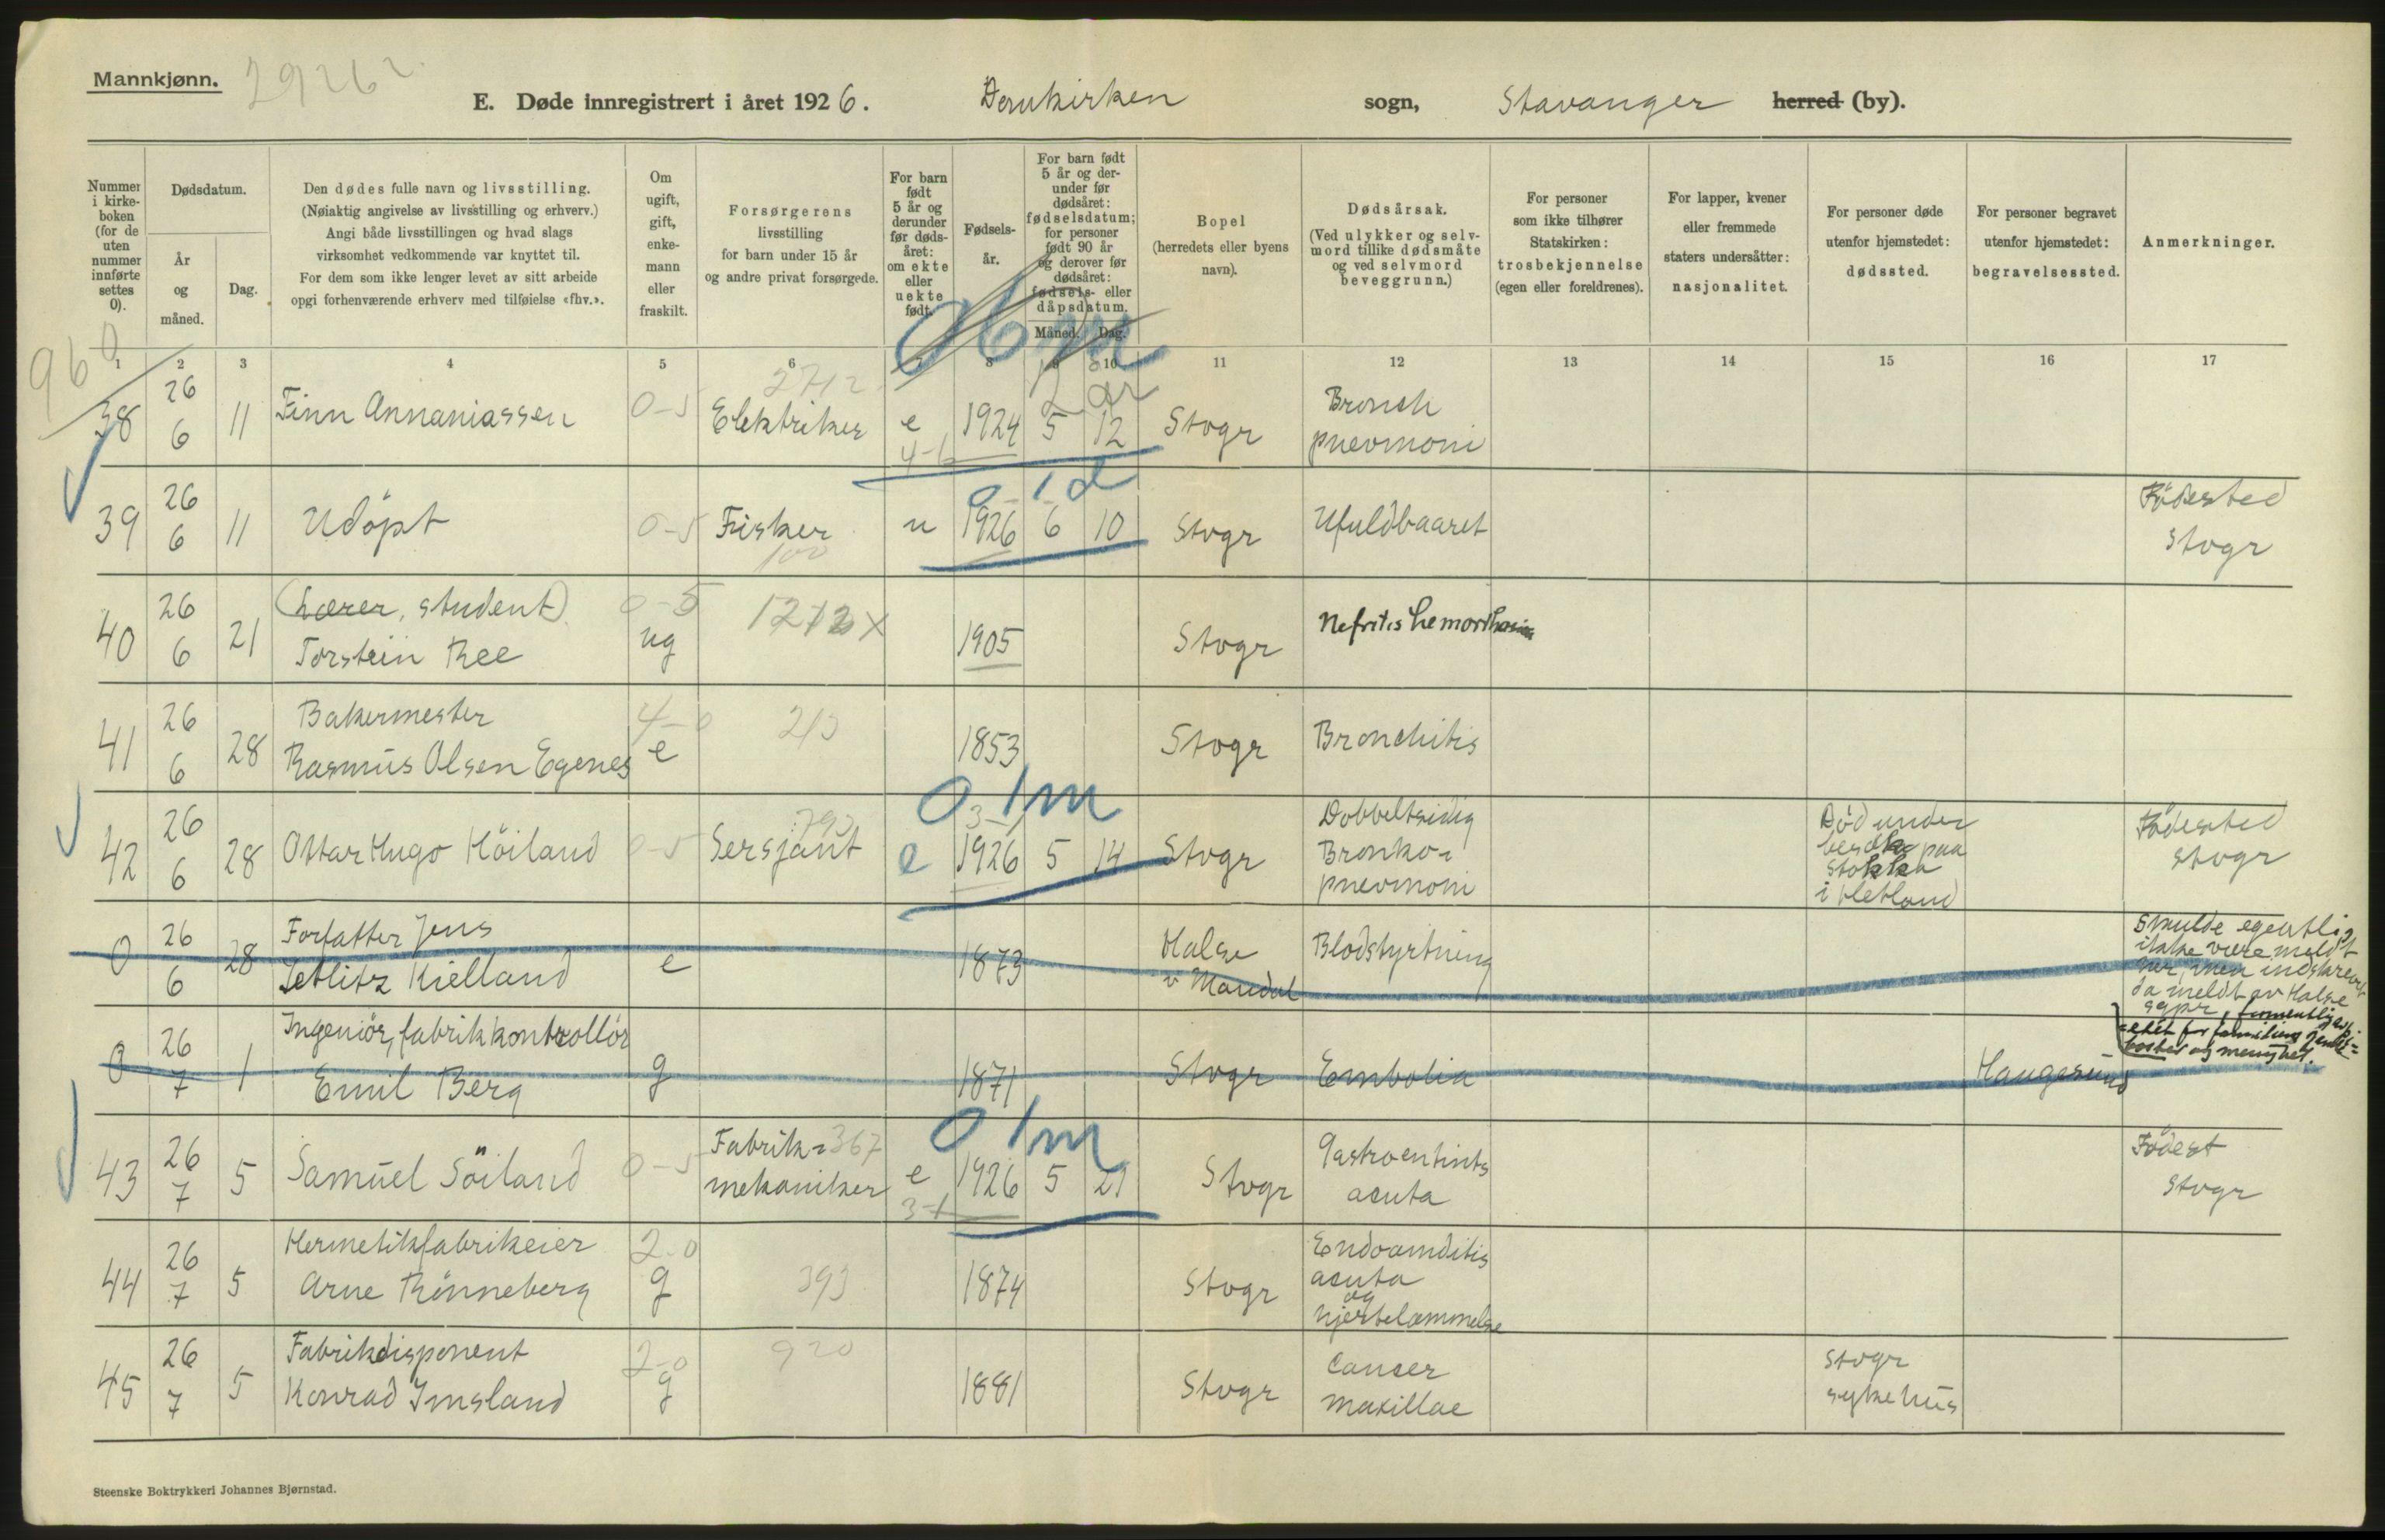 Mannkjønn.
29262
E. Døde innregistrert i året 1926. Domkirken sogn, Stavanger herred (by).
Nummer i kirkeboken (for de uten nummer innførte settes 0).
Dødsdatum.
År og måned.
Dag.
Den dødes fulle navn og livsstilling.
(Nøiaktig angivelse av livsstilling og erhverv.)
Angi både livsstillingen og hvad slags
virksomhet vedkommende var knyttet til.
For dem som ikke lenger levet av sitt arbeide
opgi forhenværende erhverv med tilføielse «fhv.».
Om ugift, gift, enkemann eller fraskilt.
Forsørgerens
livsstilling
for barn under 15 år
og andre privat forsørgede.
For barn født 5 år og derunder før dødsåret: om ekte eller uekte født.
Fødselsår.
For barn født 5 år og derunder før dødsåret: fødselsdatum; for personer født 90 år og derover før dødsåret: fødsels- eller dåpsdatum.
Måned. Dag.
Bopel
(herredets eller byens
navn).
Dødsårsak.
(Ved ulykker og selv-
mord tillike dødsmåte
og ved selvmord
beveggrunn.)
For personer
som ikke tilhører
Statskirken:
trosbekjennelse
(egen eller foreldrenes).
For lapper, kvener
eller fremmede
staters undersåtter:
nasjonalitet.
For personer døde
utenfor hjemstedet:
dødssted.
For personer begravet
utenfor hjemstedet:
begravelsessted.
Anmerkninger.
960
1 2 3 4 5 6 7 8 9 10 11 12 13 14 15 16 17
2 år
38 26 6 11 Finn Annaniassen 0-5 Elektriker e 4-1 1924 5 12 Stvgr Bronch pnevmoni
0-1 d
39 26 6 11 Udöpt 0-5 Fisker 100 u 1926 6 10 Stvgr Ufuldbaaret Födested Stvgr
40 26 6 21 (Lærer, student) Torstein Ree 0-5 ug 1905 Stvgr Nefritis
41 26 6 28 Bakermester Rasmus Olsen Egenes 4-0 e 213 1853 Stvgr Bronchitis
0 1m
42 26 6 28 Ottar Hugo Höiland 0-5 Sersjant 792 e 1926 5 14 Stvgr Dobbeltsidig Bronko- pnevmoni Död under besök paa Stokka i Hetland Födested Stvgr
0 26 6 28 Forfatter Jens Zetlitz Kielland e 1873 Halse v Mandal Blodstyrtning Skulde egentlig ikke være meldt her, men indskrevet da meldt av Halse sgpr,
0 26 7 1 Ingeniör, fabrikkontrollör Emil Berg g 1871 Stvgr Embolia Haugesund
0 1m
43 26 7 5 Samuel Söiland 0-5 Fabrik- 367 mekaniker e 3-1 1926 5 21 Stvgr Gastroentirits acuta Födest Stvgr
44 26 7 5 Hermetikfabrikeier Arne Rönneberg 2-0 g 393 1874 Stvgr acuta og hjertelammelse
45 26 7 5 Fabrikdisponent Konrad Imsland 2-0 g 920 1881 Stvgr Cancer maxillae Stvgr sykehus
Steenske Boktrykkeri Johannes Bjørnstad.